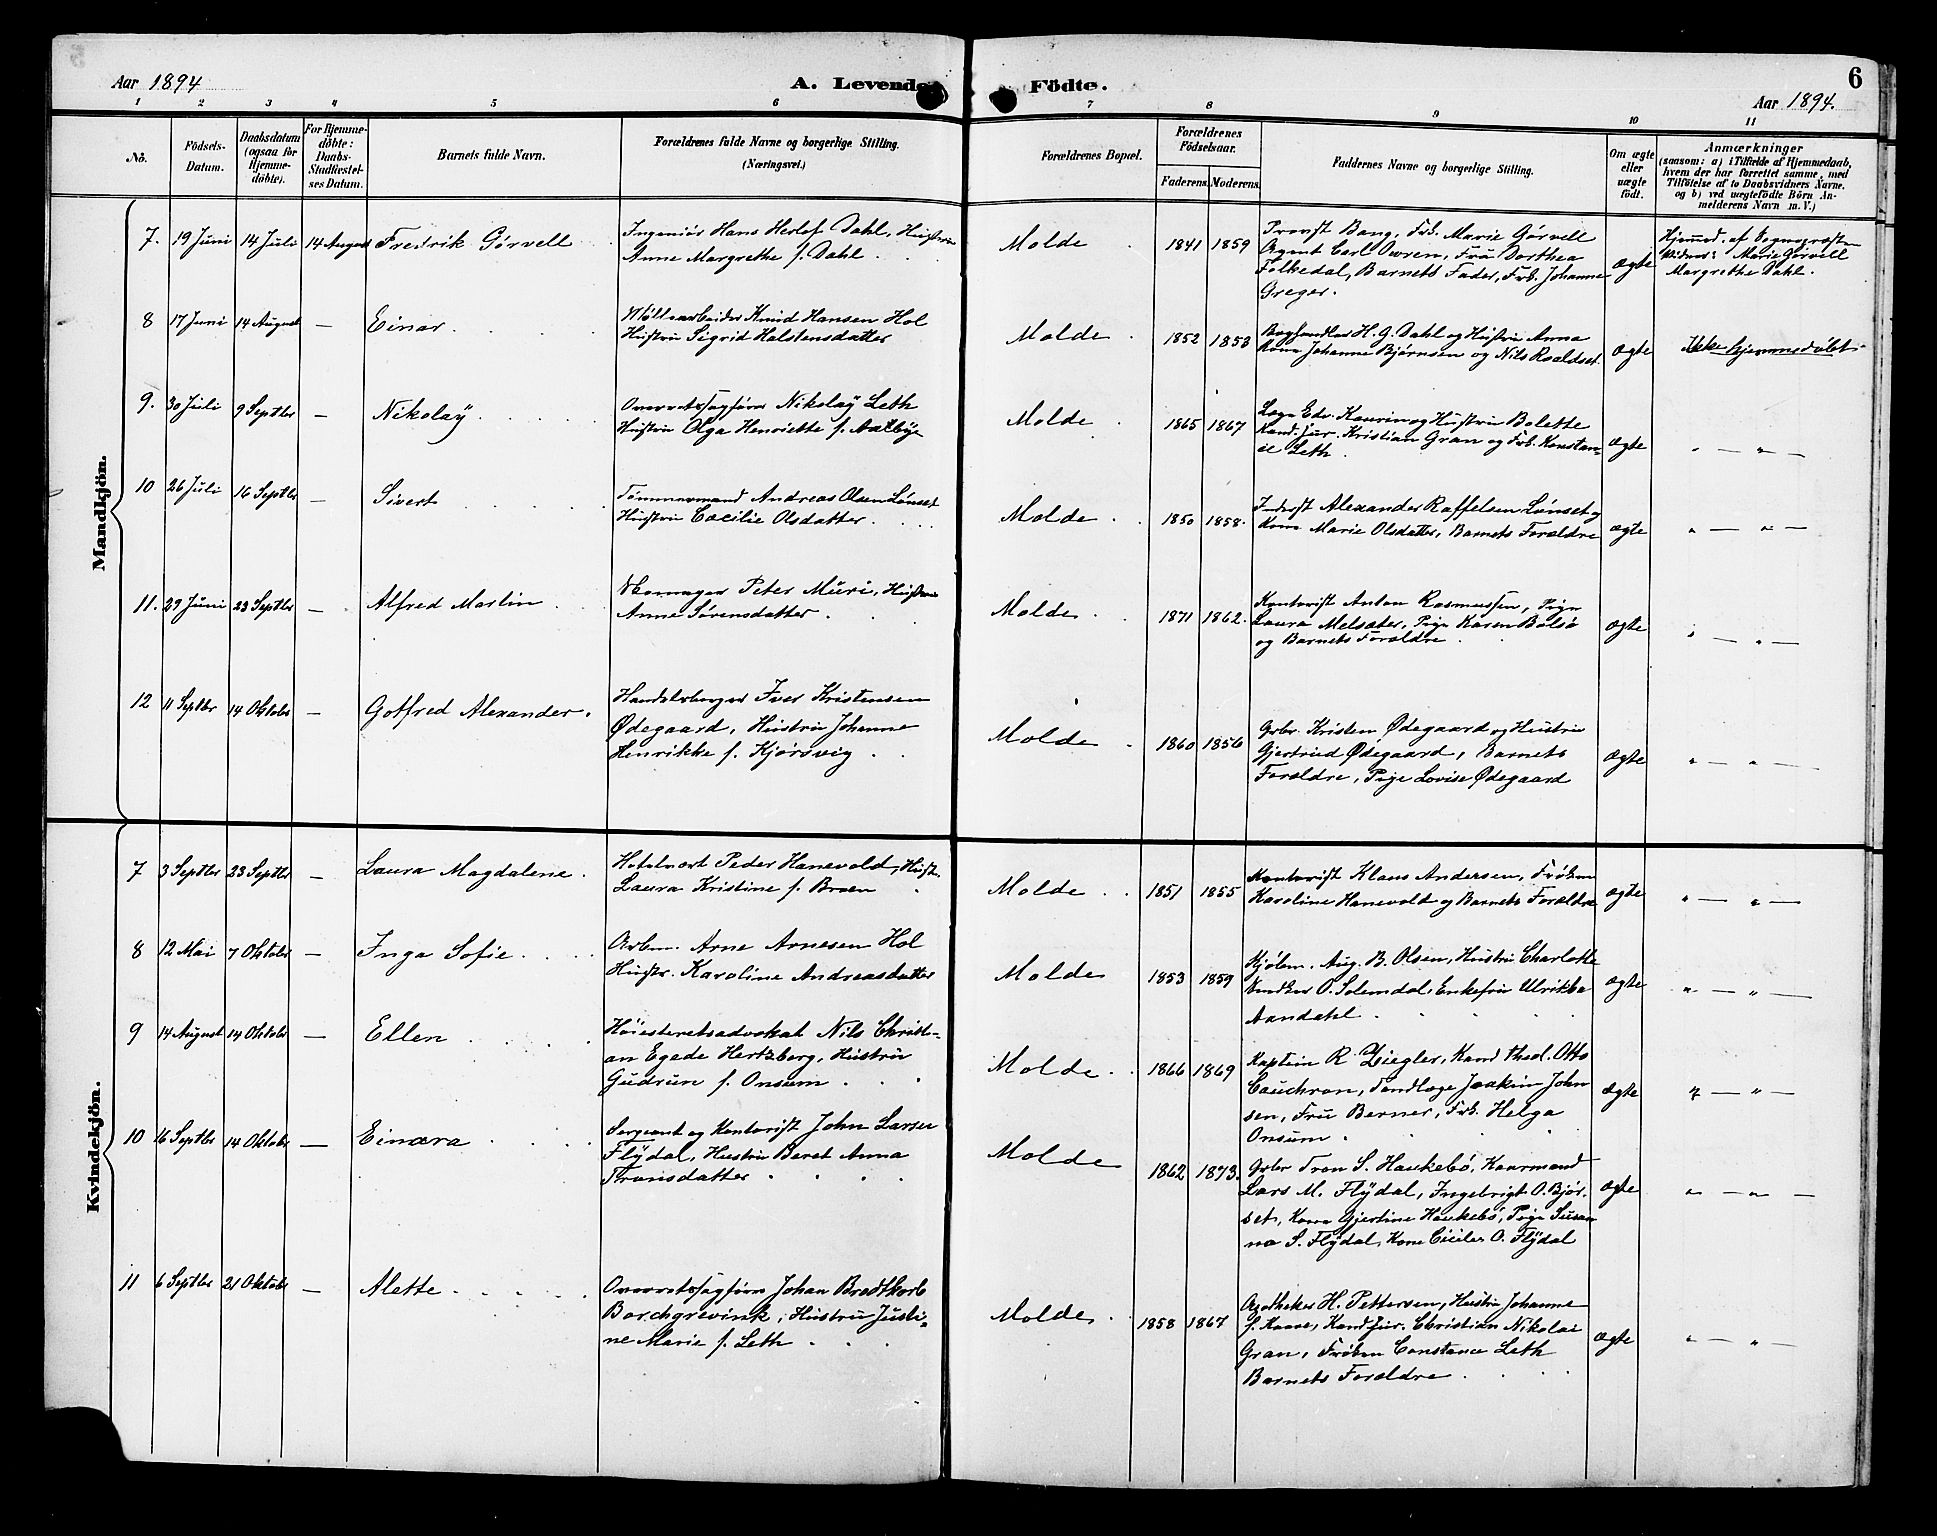 Aar 1894
A. Levende
Födte.
6
Aar 1894.
1 2 3 4 5 6 7 8 9 10 11
No.
Födsels-
Datum.
Daabsdatum
(ogsaa for
Hjemme-
döbte).
For Hjemme-
döbte:
Daabs-
Stadfæstel-
ses Datum.
Barnets fulde Navn.
Forældrenes fulde Navne og borgerlige Stilling.
(Næringsvei.)
Forældrenes Bopæl.
Forældrenes
Födselsaar.
Faderens. Moderens.
Faddernes Navne og borgerlige Stilling.
Om ægte
eller
uægte
födt.
Anmærkninger
(saasom: a) i Tilfælde af Hjemmedaab,
hvem der har forrettet samme, med
Tilföielse af to Daabsvidners Navne.
og b) ved uægtefödte Börn An-
melderens Navn m. V.)
Mandkjön.
7. 19 Juni 14 Juli 14 August Fredrik Gørvell
Ingeniør Hans Herlof Dahl, Hustru
Anne Margrethe f. Dahl
Molde 1841 1859
Provst Bang, Frk. Marie Gørvell
Agent Carl Owren, Fru Dorthea
Folkedal, Barnets Fader, Frk. Johanne
Greger.
ægte
Hjemmed. af Sognepræsten
Vidner: Marie Gørvell
Margrethe Dahl.
8 17 Juni 14 August — Einar
Møllearbeider Knud Hansen Hol
Hustru Sigrid Halstensdatter
Molde 1852 1853
Boghandler H. G. Dahl og Hustru Anna
Kone Johanne Bjørnsen og Nils Roaldset.
ægte
Ikke hjemmedøbt
9. 30 Juli 9 Septbr — Nikolay
Overretssagfører Nikolay Leth
Hustru Olga Henriette f. Aalbye
Molde 1865 1867
Læge Edv. Kaurin og Hustru Bolette
Kand. jur. Kristian Gran og Frk. Konstan-
ce Leth.
ægte
" — " —
10 26 Juli 16 Septbr — Sivert
Tømmermand Andreas Olsen Lønset
Hustru Cæcilie Olsdatter
Molde 1850 1858.
Inderst Alexander Raffelsen Lønset og
Kone Marie Olsdatter, Barnets Forældre
ægte
" — " —
11. 29 Juni 23 Septbr — Alfred Martin
Peter Muri, Hustru
Anne Sørensdatter
Molde 1871 1862.
Kontorist Anton Rasmussen, Pige
Laura Melsæter, Pige Karen Bolsø
og Barnets Forældre
ægte
" — " —
12 11 Septbr 14 Oktober — Gotfred Alexander.
Handelsborger Iver Kristensen
Ødegaard, Hustru Johanne
Henrikke f. Kjørsvig
Molde 1860 1856
Gbr. Kristen Ødegaard og Hustru
Gjertrud Ødegaard, Barnets
Forældre, Pige Lovise Ødegaard
ægte
" — " —
Kvindekjön.
7 3 Septbr 23 Septbr — Laura Magdalene.
Hotelvært Peder Hanevold, Hust.
Laura Kristine f. Broen
Molde 1851 1855
Kontorist Klaus Andersen, Frøken
Karoline Hanevold og Barnets Forældre
ægte
" — " —
8 12 Mai 7 Oktober — Inga Sofie
Arbm. Arne Arnesen Hol
Hustr. Karoline Andreasdatter
Molde 1853 1859
Kjøbm. Aug. B. Olsen, Hustru Charlotte
Snedker O. Solemdal, Enkefru Ulrikka
Aandahl
ægte
" — " —
9 14 August 14 Oktober — Ellen
Høiesteretsadvokat Nils Christi-
an Egede Hertzberg, Hustru
Gudrun f. Onsum
Molde 1866 1869
Kaptein R. Ziegler, Kand theol. Otto
Cauchron, Tandlæge Joakim John
sen, Fru Berner, Frk. Helga
Onsum
ægte
" — " —
10 16 Septbr 14 Oktober — Einara
Sergeant og Kontorist John Larsen
Flydal, Hustru Beret Anna
Tronsdatter
Molde 1862 1873.
Gbr Tron S. Haukebø, Kaarmand
Lars M. Flydal, Ingebrigt O. Bjør-
set, Kone Gjertine Haukebø, Pige Susan
na S. Flydal, Kone Cicilie O. Flydal
ægte
" — " —
11 6 Septbr 21 Oktober — Alette
Overretssagfører Johan Bredtkorb
Borchgrevink, Hustru Justi-
ne Marie f. Leth
Molde 1858 1867
Apotheker H. Pettersen, Hustru Johanne
f. Kaave, Kand. jur. Christian Nikolai
Gran, Frøken Constance Leth
Barnets Forældre
ægte
" — " —